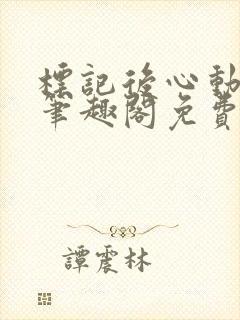 標記後心動
筆趣閣免費
譚震林